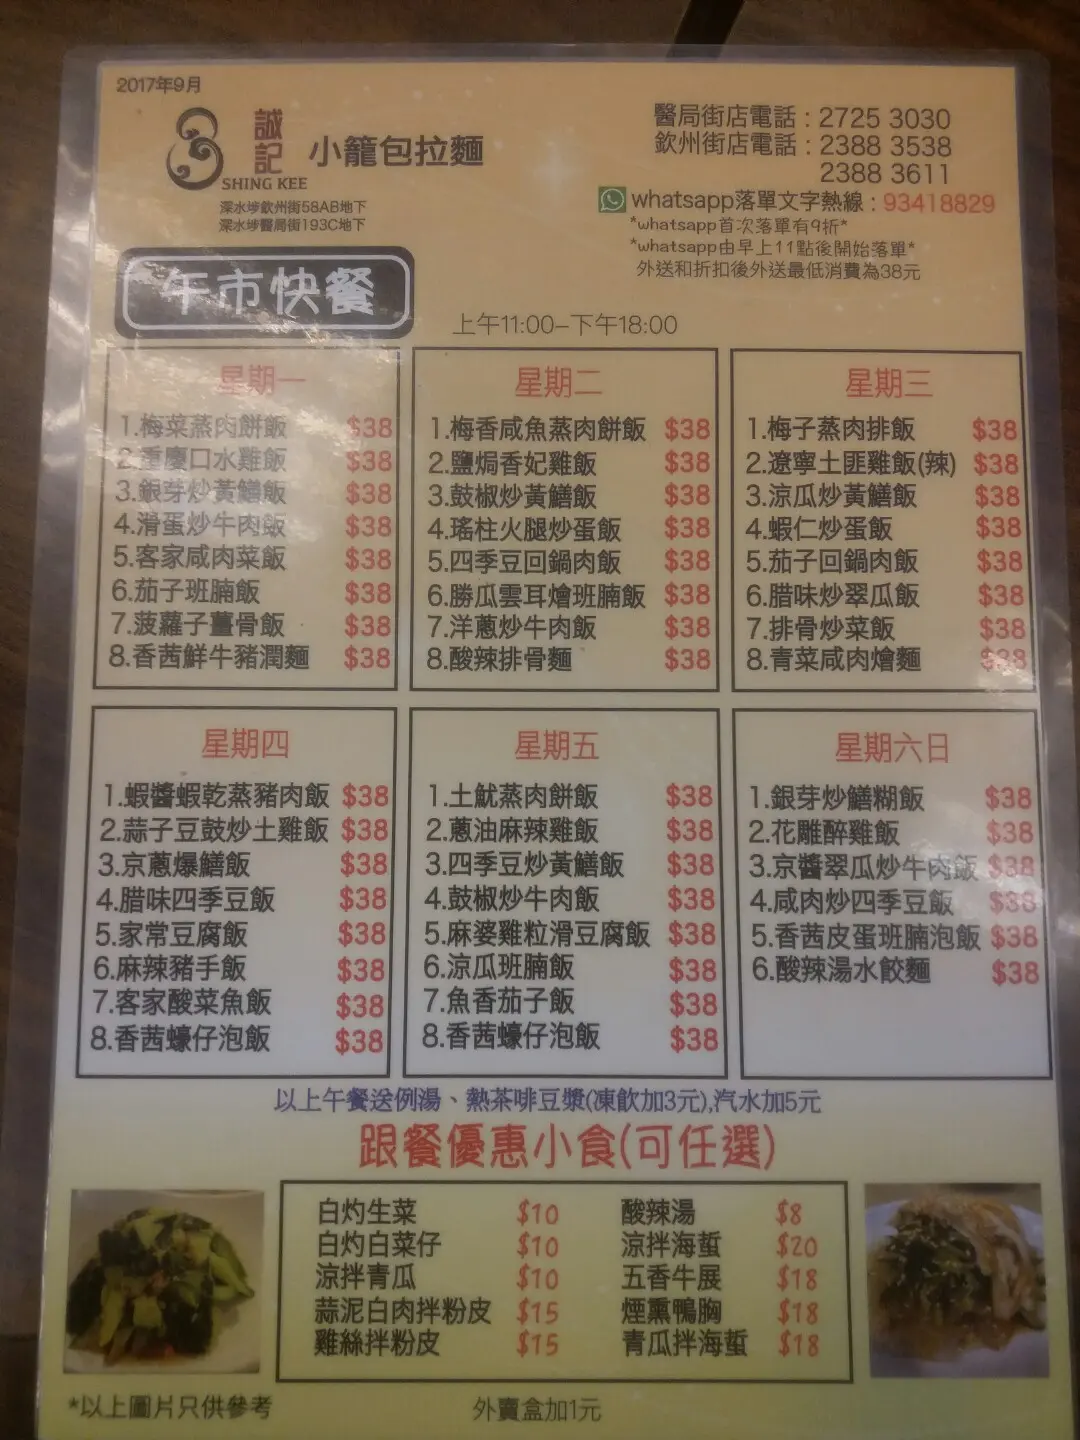 2017年9月
誠記
SHING KEE
小籠包拉麵
深水埗欽州街58AB地下
深水埗醫局街193C地下
醫局街店電話：2725 3030
欽州街店電話：2388 3538
2388 3611
whatsapp落單文字熱線：93418829
*whatsapp首次落單有9折*
*whatsapp由早上11點後開始落單*
外送和折扣後外送最低消費為38元
午市快餐
上午11:00–下午18:00
星期一
1.梅菜蒸肉餅飯 $38
2.重慶口水雞飯 $38
3.銀芽炒黃鱔飯 $38
4.滑蛋炒牛肉飯 $38
5.客家咸肉菜飯 $38
6.茄子班腩飯 $38
7.菠蘿子薑骨飯 $38
8.香茜鮮牛豬潤麵 $38
星期二
1.梅香咸魚蒸肉餅飯 $38
2.鹽焗香妃雞飯 $38
3.鼓椒炒黃鱔飯 $38
4.瑤柱火腿炒蛋飯 $38
5.四季豆回鍋肉飯 $38
6.勝瓜雲耳燴班腩飯 $38
7.洋蔥炒牛肉飯 $38
8.酸辣排骨麵 $38
星期三
1.梅子蒸肉排飯 $38
2.遼寧土匪雞飯(辣) $38
3.涼瓜炒黃鱔飯 $38
4.蝦仁炒蛋飯 $38
5.茄子回鍋肉飯 $38
6.腊味炒翠瓜飯 $38
7.排骨炒菜飯 $38
8.青菜咸肉燴麵 $38
星期四
1.蝦醬蝦乾蒸豬肉飯 $38
2.蒜子豆鼓炒土雞飯 $38
3.京蔥爆鱔飯 $38
4.腊味四季豆飯 $38
5.家常豆腐飯 $38
6.麻辣豬手飯 $38
7.客家酸菜魚飯 $38
8.香茜蠔仔泡飯 $38
星期五
1.土魷蒸肉餅飯 $38
2.蔥油麻辣雞飯 $38
3.四季豆炒黃鱔飯 $38
4.鼓椒炒牛肉飯 $38
5.麻婆雞粒滑豆腐飯 $38
6.涼瓜班腩飯 $38
7.魚香茄子飯 $38
8.香茜蠔仔泡飯 $38
星期六日
1.銀芽炒鱔糊飯 $38
2.花雕醉雞飯 $38
3.京醬翠瓜炒牛肉飯 $38
4.咸肉炒四季豆飯 $38
5.香茜皮蛋班腩泡飯 $38
6.酸辣湯水餃麵 $38
以上午餐送例湯、熱茶啡豆漿(凍飲加3元),汽水加5元
跟餐優惠小食(可任選)
白灼生菜 $10
白灼白菜仔 $10
涼拌青瓜 $10
蒜泥白肉拌粉皮 $15
雞絲拌粉皮 $15
酸辣湯 $8
涼拌海蜇 $20
五香牛展 $18
煙熏鴨胸 $18
青瓜拌海蜇 $18
*以上圖片只供參考
外賣盒加1元